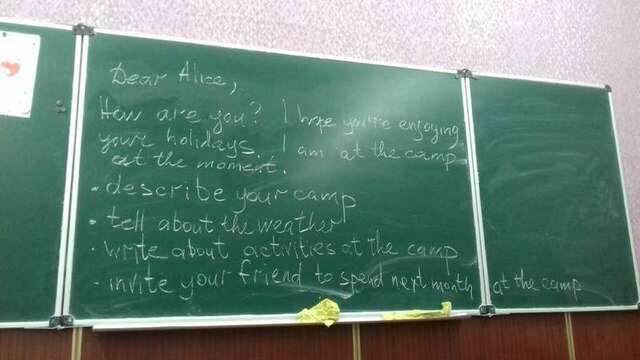 Dear Alice,
How are you? I hope you're enjoying
your holidays. I am at the camp
at the moment.
• describe your camp
• tell about the weather
• write about activities at the camp
• invite your friend to spend next month at the camp